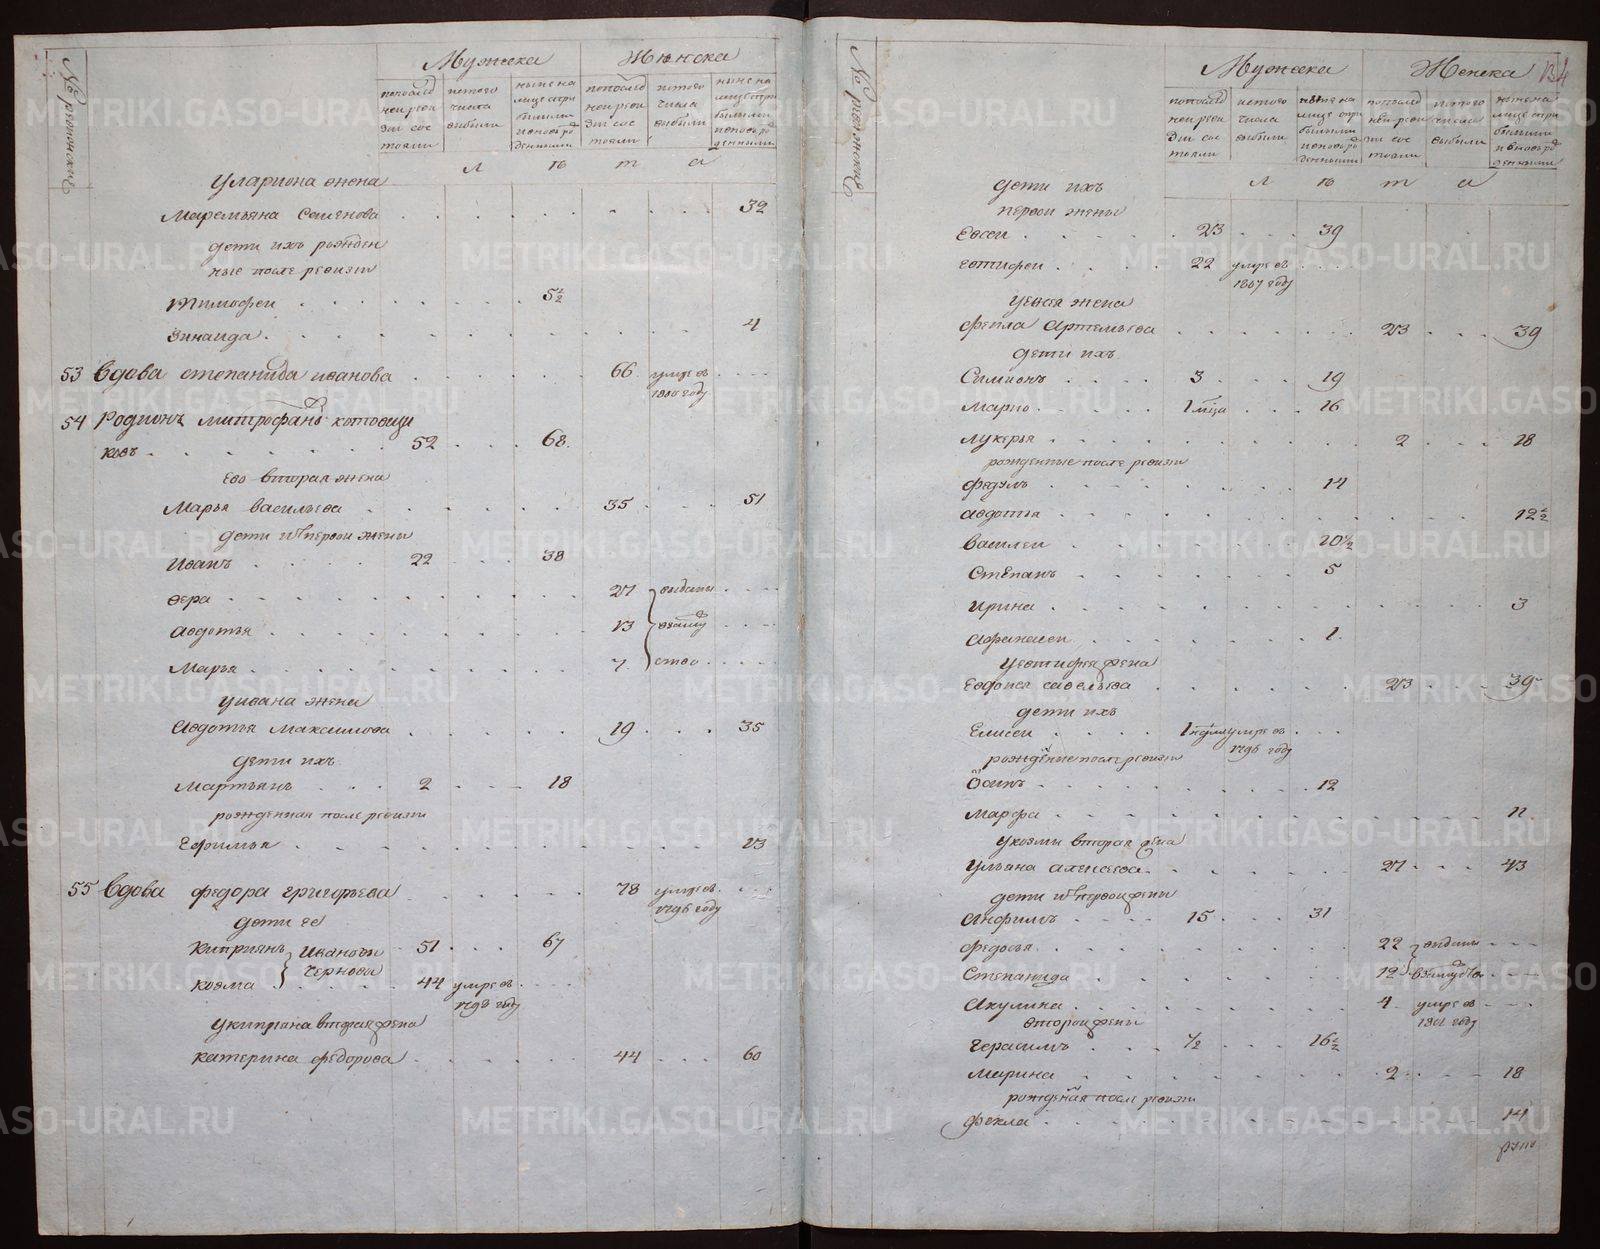 № ревизские
Мужеска
Женска
попослед
ней реви
зии сос
тояли
ис того
числа
выбыли
ныне на
лице спри
былыми
и вновь ро
жденными
попослед
ней реви
зии сос
тояли
ис того
числа
выбыли
ныне на
лице спри
былыми
и вновь ро
жденными
л ѣ т а
У лариона жена
Маремьяна Семенова 32
дети ихъ рожден
ные после ревизіи
Тимофеи 5½
Зинаида 4
53 Вдова степанида иванова 66 умре въ
1800 году
54 Родионъ митрофанъ котовщи
ковъ 52 68
Ево вторая жена
Марья васильева 35 51
дети отъ первои жены
Иванъ 22 38
вера 21 выданы
авдотья 13 взамуж
Марья 7 ство
у ивана жена
Авдотья Максимова 19 35
дети ихъ
Мартьянъ 2 18
рожденная после ревизіи
Ефимья 13
55 Вдова федора григорьева 78 умре въ
1796 году
дети ее
Киприянъ Ивановы 51 67
Черновы
Козма 44 умре въ
1798 году
у киприяна вторая жена
катерина федорова 44 60
№ ревизские
Мужеска
Женска
134
попослед
ней реви
зии сос
тояли
ис того
числа
выбыли
ныне на
лице спри
былыми
и вновь ро
жденными
попослед
ней реви
зии сос
тояли
ис того
числа
выбыли
ныне на
лице спри
былыми
и вновь ро
жденными
л ѣ т а
дети ихъ
первои жены
Евсеи 23 39
евтифеи 22 умре въ
1807 году
у евсея жена
фекла Артемьева 23 39
дети ихъ
Симионъ 3 19
Марко 1 мца 16
лукерья 2 18
рожденные после ревизіи
федулъ 14
авдотья 12½
василеи 10½
Степанъ 5
Ирина 3
афанасеи 1
у евтифея жена
Евдокия савельева 23 39
дети ихъ
Елисеи 1 недля умре въ
1796 году
рожденые после ревизіи
Осипъ 12
Марфа 11
у козмы вторая жена
Ульяна алексеева 27 43
дети отъ первои жены
Анфимъ 15 31
федосья 22 выданы
Степанида 12 взамужъ
Акулина 4 умре въ
1801 году
второи жены
Герасимъ ½ 16½
Марина 2 18
рожденая после ревизіи
фекла 14
METRIKI.GASO-URAL.RU